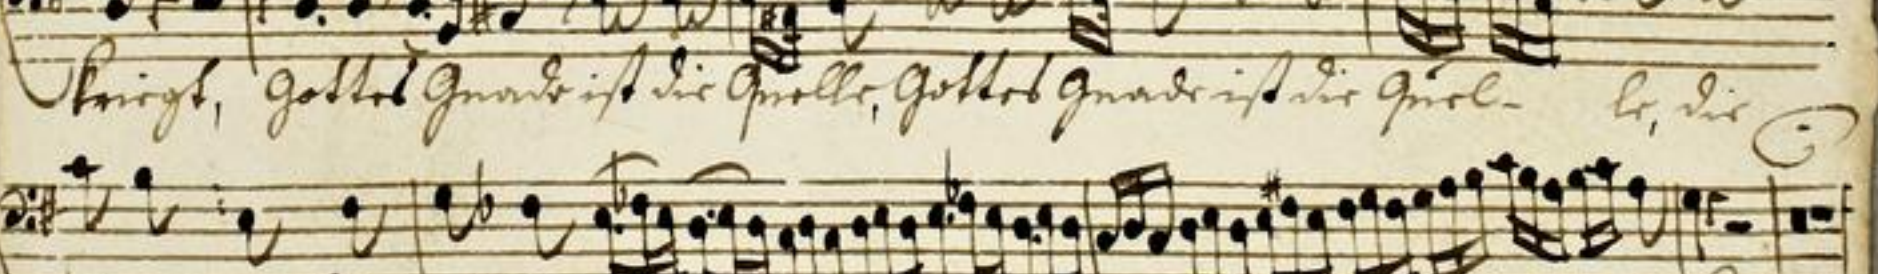 kriegt, Gottes Gnade ist die Quelle, Gottes Gnade ist die Quel- le, die